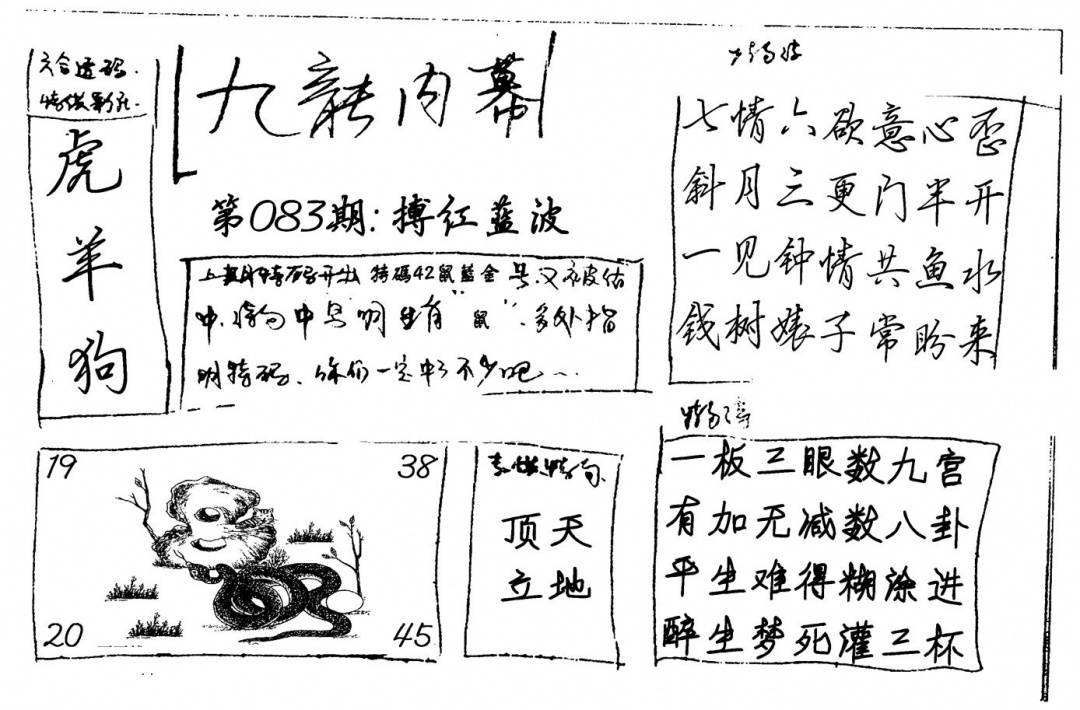 六合透码.
虎
羊
狗
九龍内幕
第083期:搏红蓝波
上期特码开出 特碼42鼠藍金 号又被估
中.特句中号明生肖"鼠".多处指
明特码.你们一定中了不少吧~
七情六欲意心歪
斜月三更门半开
一见钟情共鱼水
钱树婊子常盼来
19
38
20
45
顶天
立地
一板三眼数九宫
有加无减数八卦
平生难得糊涂进
醉生梦死灌三杯